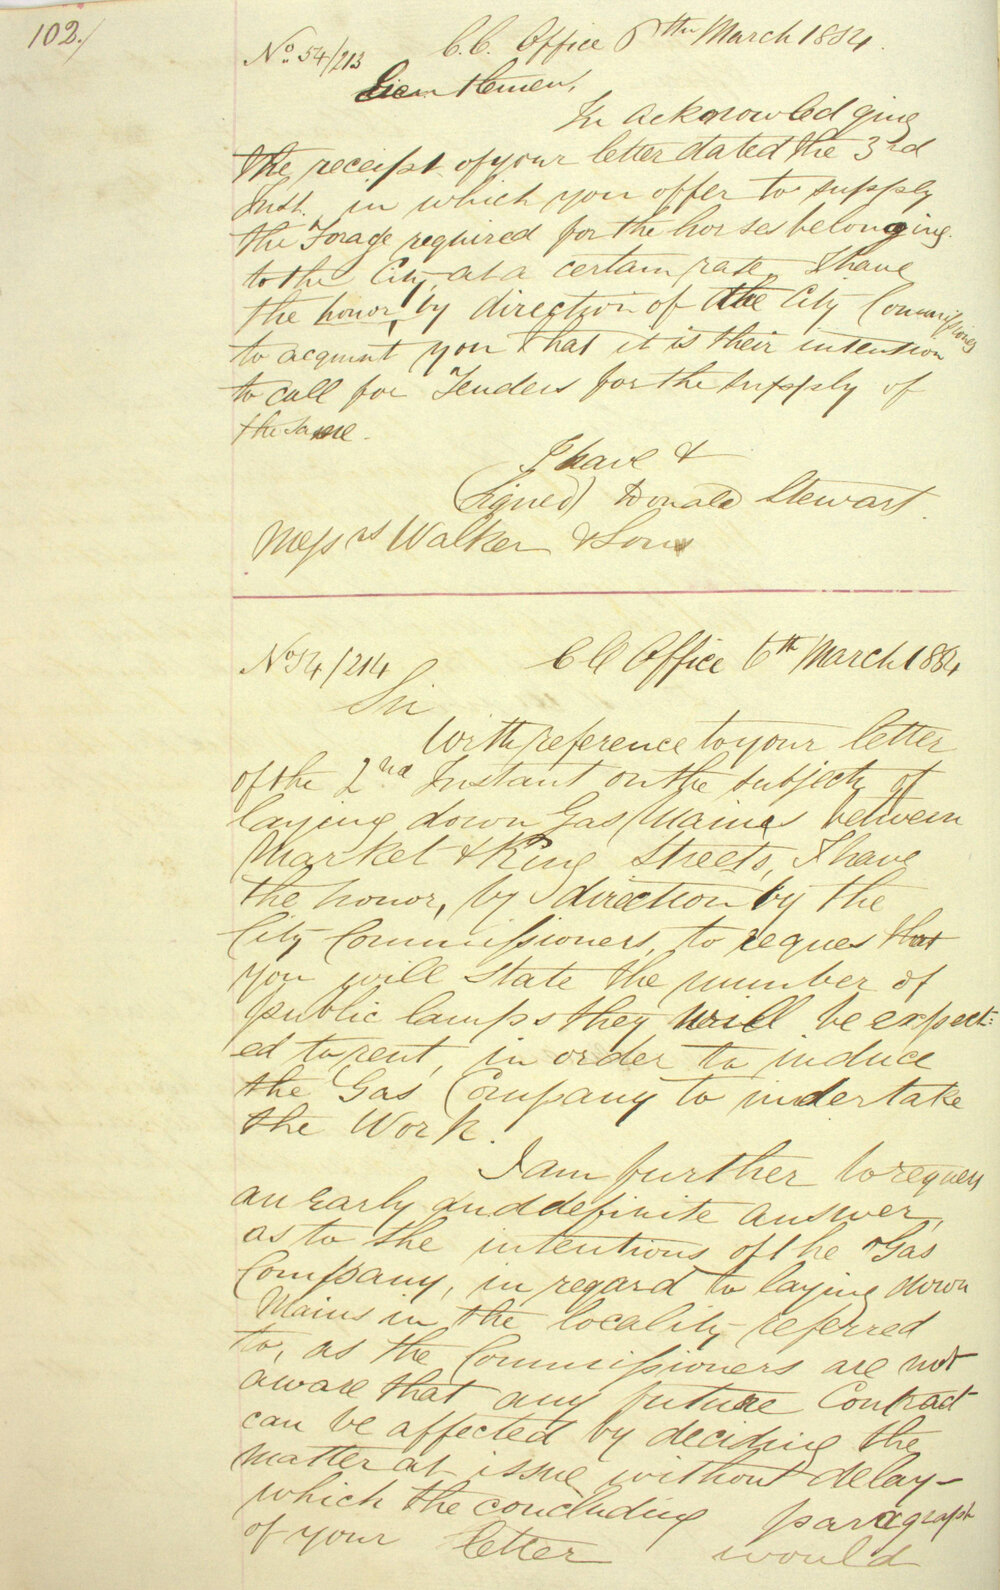 102./
No. 54/213 C.C. Office 6th March 1884.
Gentlemen,
In acknowledging
the receipt of your letter dated the 3rd
Inst. in which you offer to supply
the Forage required for the horses belonging
to the City, at a certain rate, I have
the honor, by direction of the City Commissioners
to acquint you that it is their intension
to call for Tenders for the supply of
the same.
I have &
(Signed) Donald Stewart
Messrs Walker & Sons
No 54/214 C C Office 6th March 1884
Sir
With reference to your letter
of the 2nd Instant on the subject of
laying down Gas Mains between
Market & King Streets, I have
the honor, by direction by the
City Commissioners, to request that
you will state the number of
public lamps they will be expect:
ed to rent, in order to induce
the Gas Company to undertake
the Work.
I am further to request
an early and definite answer,
as to the intentions of the Gas
Company, in regard to laying down
Mains in the locality referred
to, as the Commissioners are not
aware that any future Contract
can be affected by deciding the
matter at issue without delay -
which the concluding paragraph
of your letter would